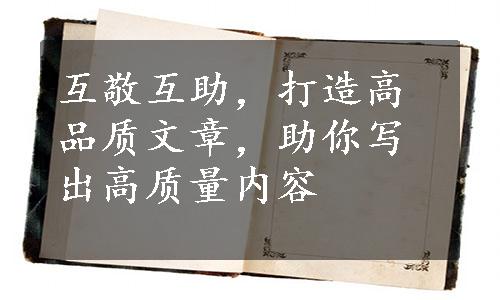 互敬互助，打造高
品质文章，助你写
出高质量内容